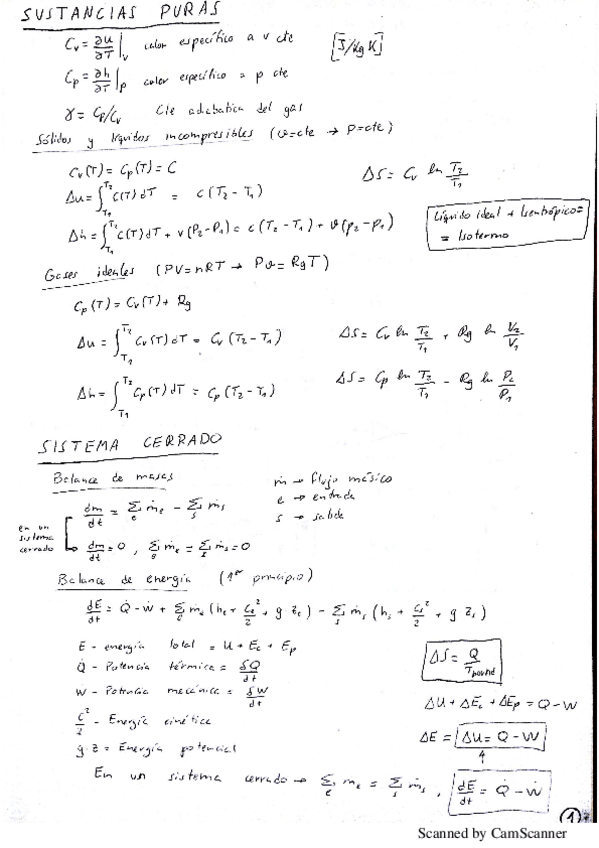 SUSTANCIAS PURAS
Cv = ∂u/∂T |v calor específico a v cte [J/kg K]
Cp = ∂h/∂T |p calor específico a p cte
γ = Cp/Cv Cte adiabatica del gas
Sólidos y líquidos incompresibles (v=cte → ρ=cte)
Cv(T) = Cp(T) = C
ΔS = Cv ln T2/T1
Δu = ∫T1^T2 C(T) dT = c (T2 - T1)
Δh = ∫T1^T2 C(T) dT + v(P2-P1) = c (T2 - T1) + v (p2 - p1)
Líquido ideal + Isentrópico =
= Isotermo
Gases ideales (PV = nRT → Pv = RgT)
Cp(T) = Cv(T) + Rg
Δu = ∫T1^T2 Cv(T) dT = Cv (T2 - T1)
ΔS = Cv ln T2/T1 + Rg ln V2/V1
Δh = ∫T1^T2 Cp(T) dT = Cp (T2 - T1)
ΔS = Cp ln T2/T1 - Rg ln P2/P1
SISTEMA CERRADO
Balance de masas
ṁ → flujo másico
dm/dt = Σe ṁe - Σs ṁs
e → entrada
s → salida
en un
sistema
cerrado
dm/dt = 0 , Σe ṁe = Σs ṁs = 0
Balance de energía (1er principio)
dE/dt = Q̇ - Ẇ + Σe ṁe (he + Ce²/2 + g ze) - Σs ṁs (hs + Cs²/2 + g zs)
E - energía total = U + Ec + Ep
Q̇ - Potencia térmica = δQ/dt
Ẇ - Potencia mecánica = δW/dt
C²/2 - Energía cinética
g·z = Energía potencial
ΔS = Q/Tbound
ΔU + ΔEc + ΔEp = Q - W
ΔE = ΔU = Q - W
En un sistema cerrado → Σe ṁe = Σs ṁs , dE/dt = Q̇ - Ẇ
1
Scanned by CamScanner